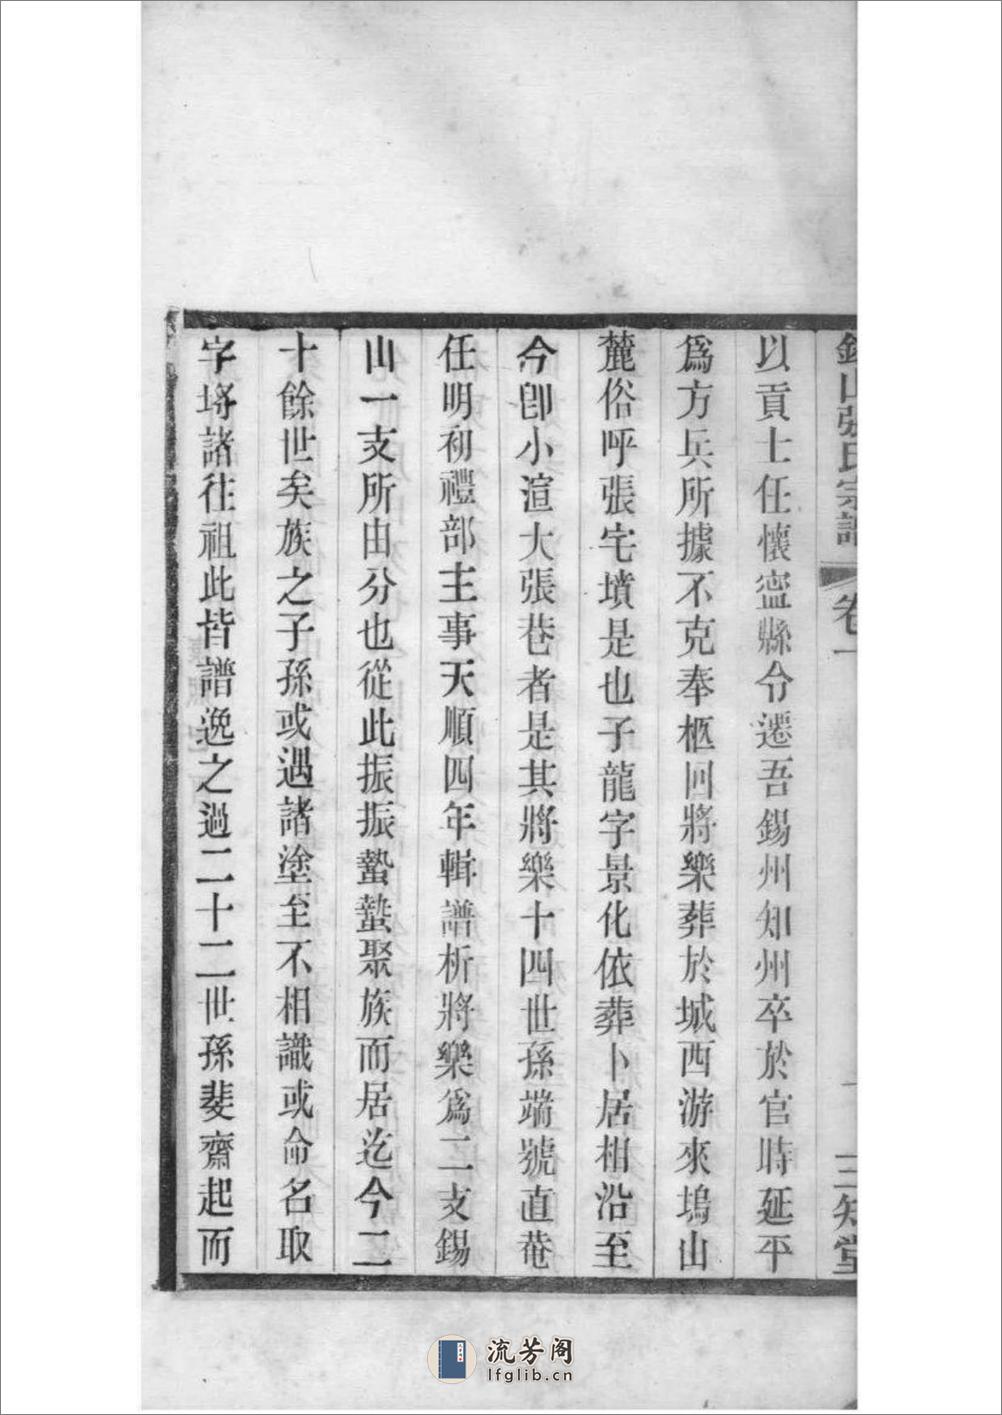 錫山張氏宗譜 卷一 三知堂
以貢士任懷寍縣令遷吾錫州知州卒於官時延平
爲方兵所據不克奉柩回將樂葬於城西游來塢山
麓俗呼張宅墳是也子龍字景化依葬卜居相沿至
今卽小渲大張巷者是其將樂十四世孫端號直菴
任明初禮部主事天順四年輯譜析將樂爲二支錫
山一支所由分也從此振振蟄蟄聚族而居迄今二
十餘世矣族之子孫或遇諸塗至不相識或命名取
字埓諸往祖此皆譜逸之過二十二世孫斐齋起而
流芳阁
lfglib.cn